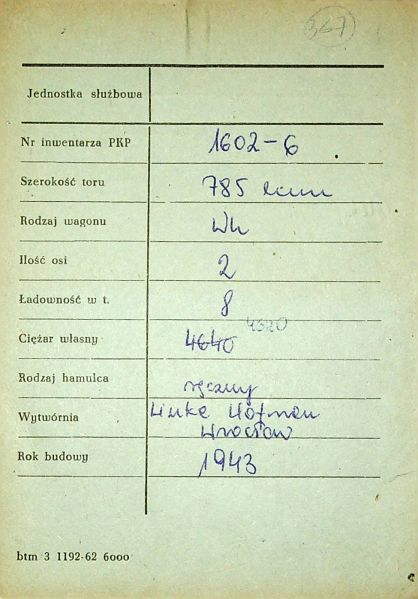 367
Jednostka służbowa
Nr inwentarza PKP 1602-6
Szerokość toru 785 mm
Rodzaj wagonu Wh
Ilość osi 2
Ładowność w t. 8
4320
Ciężar własny 4640
Rodzaj hamulca ręczny
Wytwórnia Linke Hofman
Wrocław
Rok budowy 1943
btm 3 1192-62 6000